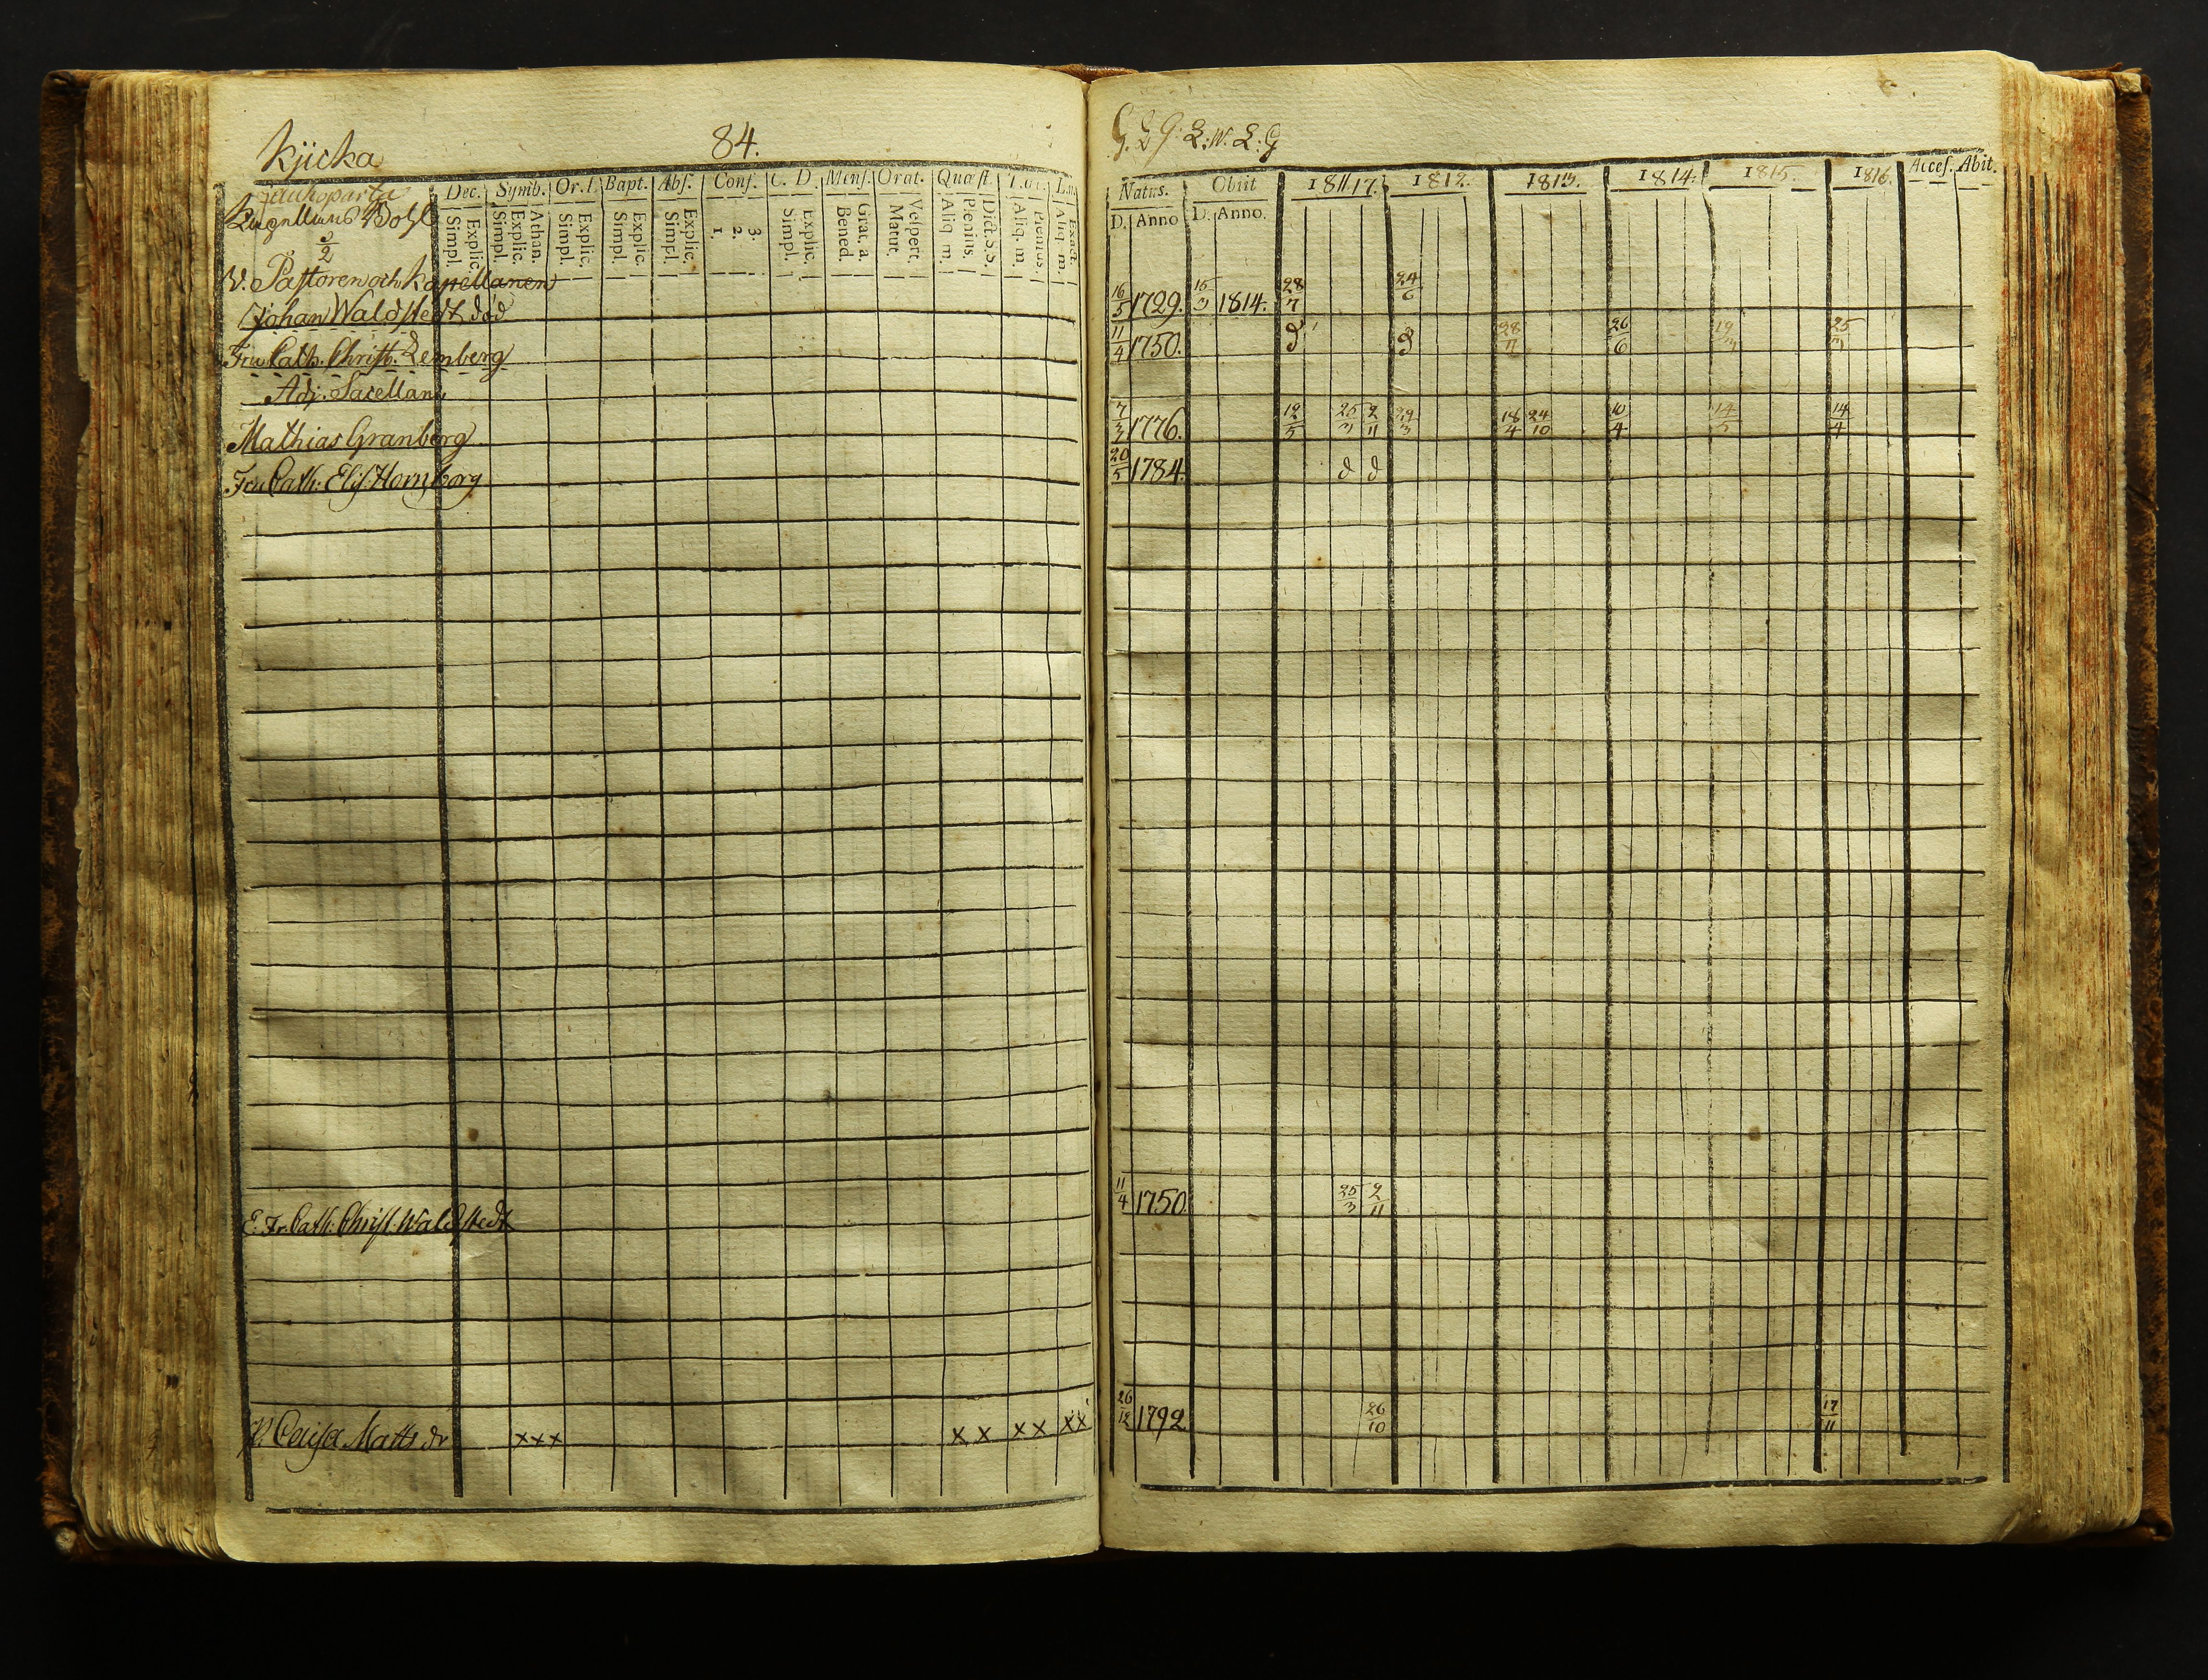 84.
Kjicka
Dec. Symb. Or. D. Bapt. Abs. Conf. C. D. Mens. Orat. Quæst.
Simpl. Explic. Simpl. Explic. Athan. Simpl. Explic. Simpl. Explic. Simpl. Explic. 1. 2. 3. Simpl. Explic. Bened. Grat. a. Matut. Vespert. Aliq. m. Plenius. Dict. S.S. Aliq. m. Plenius. Aliq. m. Exact.
Bohl
3/2
V. Pastoren och Kapellanen
Johan Waldstedt död
Fru Cath. Christ. Lemberg
Adj. Sacellan
Mathias Granberg
Fru Cath: Elis: Hornborg
E. Fr. Cath: Christ. Waldstedt
P. Caisa Matts dr xxx x x x x x x
Natus. Obiit 1811 17. 1812. 1813. 1814. 1815. 1816. Acces. Abit.
D. Anno D. Anno.
16/5 1729. 15/3 1814. 28/7 24/6
11/4 1750. 26/6 25/3
7/3 1776. 12/5 25/3 2/11 29/3 18/4 24/10 10/4 14/5 14/4
20/5 1784. d d
11/4 1750 25/3 2/11
26/12 1792 26/10 17/11